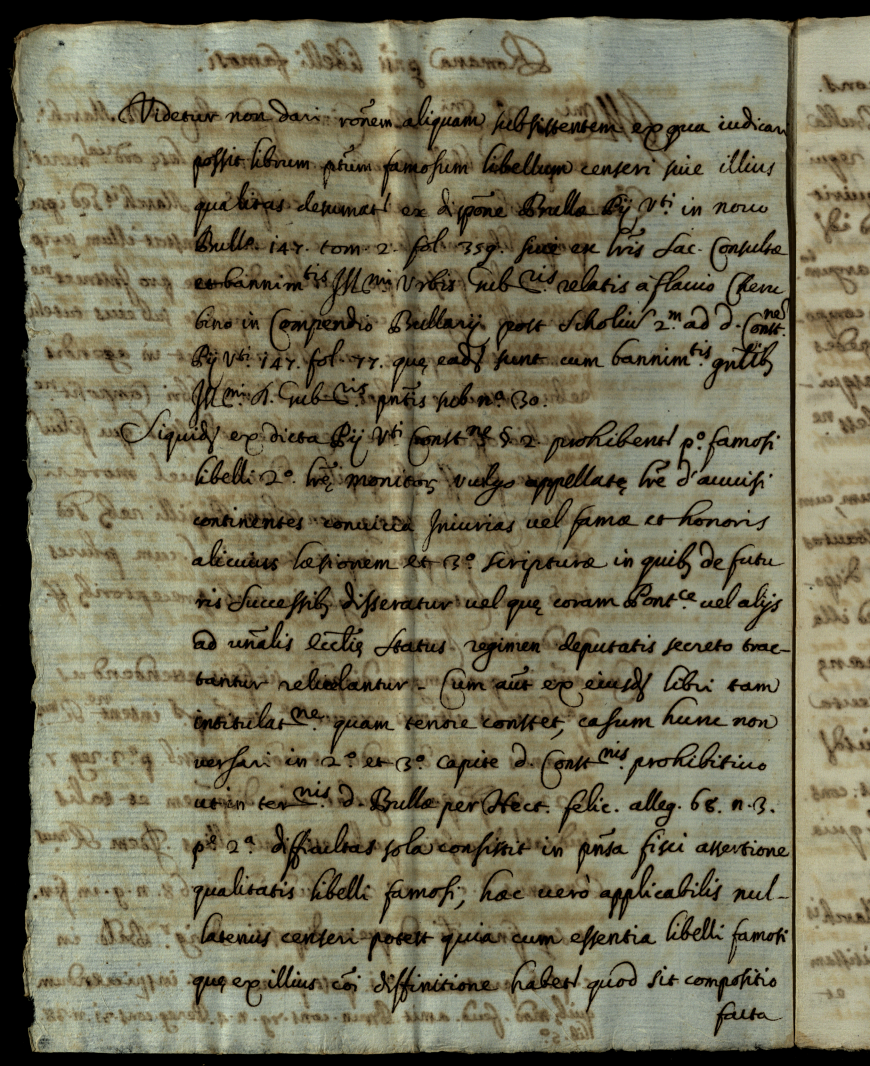 Videtur non dari rõnem aliquam subsistentem ex qua iudicari
possit librum ptũm famosum libellum censeri siue illius
qualitas desumat' ex dispõne Bullæ Pij Vti in nouo
Bullo. 147. tom. 2. fol. 359. siue ex lr̃is Sac. Consultæ
et bannimtis Illmi Vrbis Gubris relatis a flauio Cheru
bino in Compendio Bullarij post Scholiũ 2m ad d. Constnes
Pij Vti. 147. fol. 77. quę ead sunt cum bannimtis gñlib
Illmi. d. Gubris. pñtis sub no. 30.
Siquid ex dicta Pij Vti Constne § 2. prohibent' po. famosi
libelli 2o. lr̃ę monitor vulgo appellatę lr̃e d'auuisi
continentes conuicia Iniurias uel famæ et honoris
alicuius læsionem et 3o. scripturæ in quib de futu
ris Successib disseratur uel quę coram Pontce uel alijs
ad vñalis eccl̃ię Status regimen deputatis secreto trac-
tantur reuelantur. Cum aũt ex eiusd libri tam
intitulatne. quam tenore constet, casum hunc non
uersari in 2o. et 3o. capite d. Constnis. prohibitiuo
ut in ternis. d. Bullæ per Hect. felic. alleg. 68. n. 3.
2a difficultas sola consistit in pñsa fisci assertione
qualitatis libelli famosi, hæc uerò applicabilis nul-
latenus censeri potest quia cum essentia libelli famosi
quę ex illius cõi diffinitione habet' quod sit compositio
facta